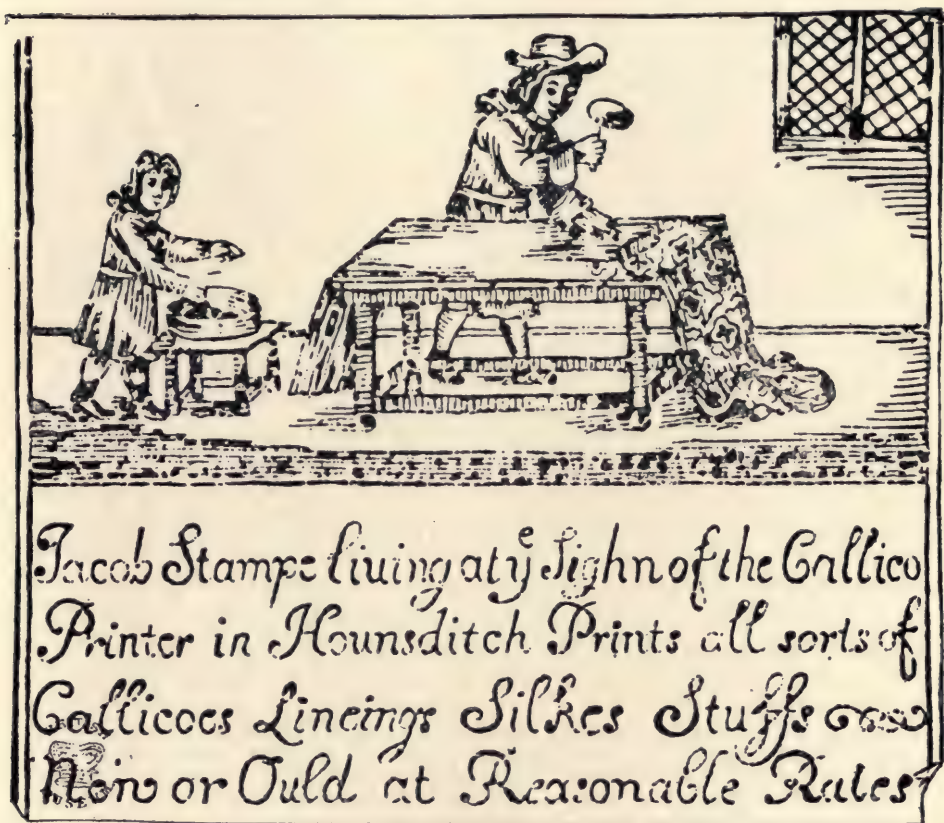 Jacob Stampe liuing at yᵉ Sighn of the Callico
Printer in Hounsditch Prints all sorts of
Callicoes Lineings Silkes Stuffs
New or Ould at Reasonable Rates